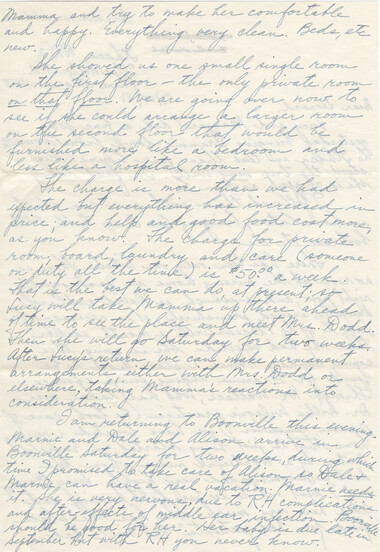 Mamma and try to make her comfortable
and happy. Everything very clean. Beds, etc
new.
She showed us one small single room
on the first floor – the only private room
on that floor. We are going over now to
see if she could arrange a larger room
on the second floor that would be
furnished more like a bedroom and
less like a hospital room.
The charge is more than we had
expected but everything has increased in
price; and help and good food cost more,
as you know. The charge for private
room, board, laundry and care (someone
on duty all the time) is $50.00 a week.
That is the best we can do, at present; so
Lucy will take Mamma up there ahead
of time to see the place and meet Mrs. Dodd.
Then she will go Saturday for two weeks.
After Lucy's return, we can make permanent
arrangements either with Mrs. Dodd or
elsewhere, taking Mamma's reactions into
consideration.
I am returning to Boonville this evening.
Marnie and Dale and Alison arrive in
Boonville Saturday for two weeks, during which
time I promised to take care of Alison so Dale &
Marnie can have a real vacation. Marnie needs
it. She is very nervous, due to RH complications
and after-effects of middle ear infection. Boonville
should be good for her. Her baby is due late in
September but with RH you never know.